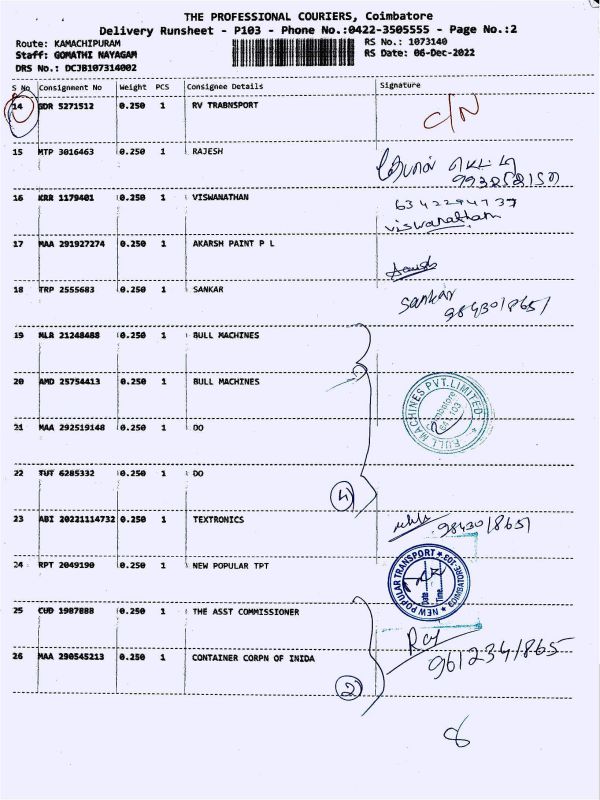 THE PROFESSIONAL COURIERS, Coimbatore
Delivery Runsheet - P103 - Phone No.:0422-3505555 - Page No.:2
Route: KAMACHIPURAM
RS No.: 1073140
Staff: GOMATHI NAYAGAM
RS Date: 06-Dec-2022
DRS No.: DCJB107314002
S No Consignment No Weight PCS Consignee Details Signature
14 GDR 5271512 0.250 1 RV TRABNSPORT C/N
15 MTP 3016463 0.250 1 RAJESH
16 KRR 1179401 0.250 1 VISWANATHAN
viswanatham
17 MAA 291927274 0.250 1 AKARSH PAINT P L
18 TRP 2555683 0.250 1 SANKAR
Sankar
9843018651
19 MLR 21248488 0.250 1 BULL MACHINES
20 AMD 25754413 0.250 1 BULL MACHINES
BULL MACHINES PVT.LIMITED
Coimbatore
641 103
21 MAA 292519148 0.250 1 DO
22 TUT 6285332 0.250 1 DO
4
23 ABI 20221114732 0.250 1 TEXTRONICS
9843018651
24 RPT 2049190 0.250 1 NEW POPULAR TPT
NEW POPULAR TRANSPORT
COIMBATORE-103
Date
Time
25 CUD 1987888 0.250 1 THE ASST COMMISSIONER
Raj
26 MAA 290545213 0.250 1 CONTAINER CORPN OF INIDA
9612341865
2
8